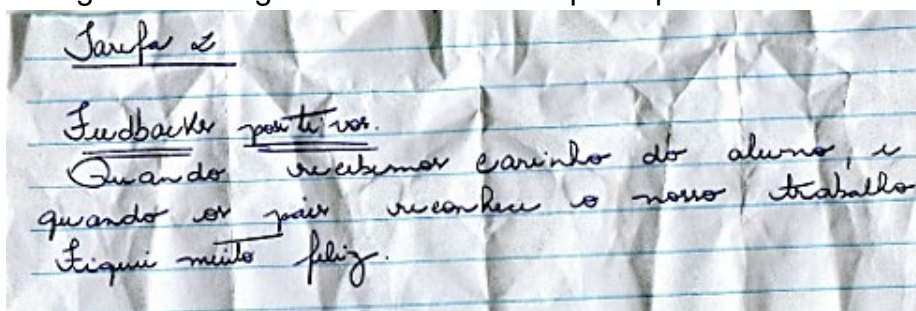 Tarefa 2
Feedbacks positivos.
Quando recebemos carinho do aluno, e
quando os pais reconhece o nosso trabalho
Fiquei muito feliz.